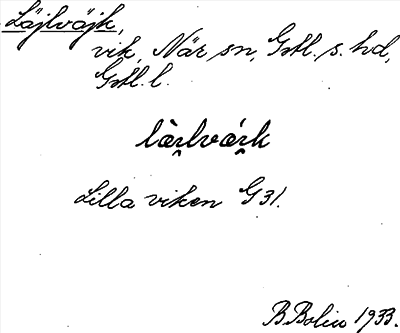 Läjlväjk,
vik, När sn, Gotl. s. hd,
Gotl. l.
làɪ̯lváɪ̯k
Lilla viken G 31.
B Bolin 1933.